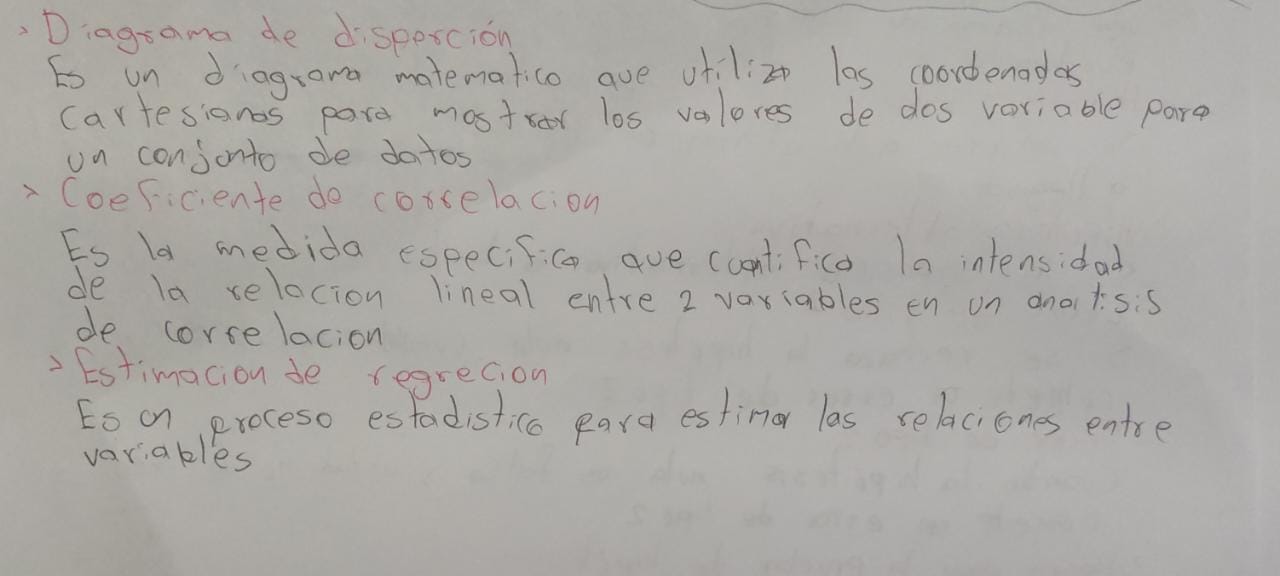 > Diagrama de disperción
Es un diagrama matematico que utiliza las coordenadas
cartesianas para mostrar los valores de dos variable para
un conjunto de datos
> Coeficiente de correlacion
Es la medida especifica que cuantifica la intensidad
de la relacion lineal entre 2 variables en un analisis
de correlacion
> Estimacion de regrecion
Es un proceso estadistico para estimar las relaciones entre
variables